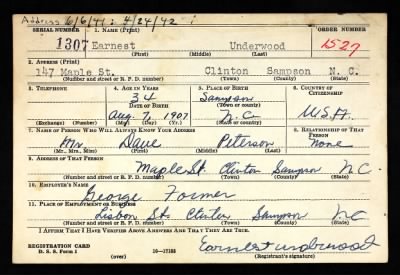 Address 6/6/41; 4/24/42
SERIAL NUMBER 1. NAME (Print) ORDER NUMBER
1307 Earnest Underwood 1527
(First) (Middle) (Last)
2. ADDRESS (Print)
147 Maple St. Clinton Sampson N. C.
(Number and street or R. F. D. number) (Town) (County) (State)
3. TELEPHONE 4. AGE IN YEARS 5. PLACE OF BIRTH 6. COUNTRY OF CITIZENSHIP
34 Sampson
DATE OF BIRTH (Town or county)
Aug. 7, 1907 N.C. U.S.A.
(Exchange) (Number) (Mo.) (Day) (Yr.) (State or country)
7. NAME OF PERSON WHO WILL ALWAYS KNOW YOUR ADDRESS 8. RELATIONSHIP OF THAT PERSON
Mr. Dave Peterson None
(Mr., Mrs., Miss) (First) (Middle) (Last)
9. ADDRESS OF THAT PERSON
Maple St. Clinton Sampson N C.
(Number and street or R. F. D. number) (Town) (County) (State)
10. EMPLOYER'S NAME
George
11. PLACE OF EMPLOYMENT OR BUSINESS
Lisbon St. Clinton Sampson N C
(Number and street or R. F. D. number) (Town) (County) (State)
I AFFIRM THAT I HAVE VERIFIED ABOVE ANSWERS AND THAT THEY ARE TRUE.
REGISTRATION CARD
D. S. S. Form 1 (over) 16—17105 Earnest underwood
(Registrant's signature)